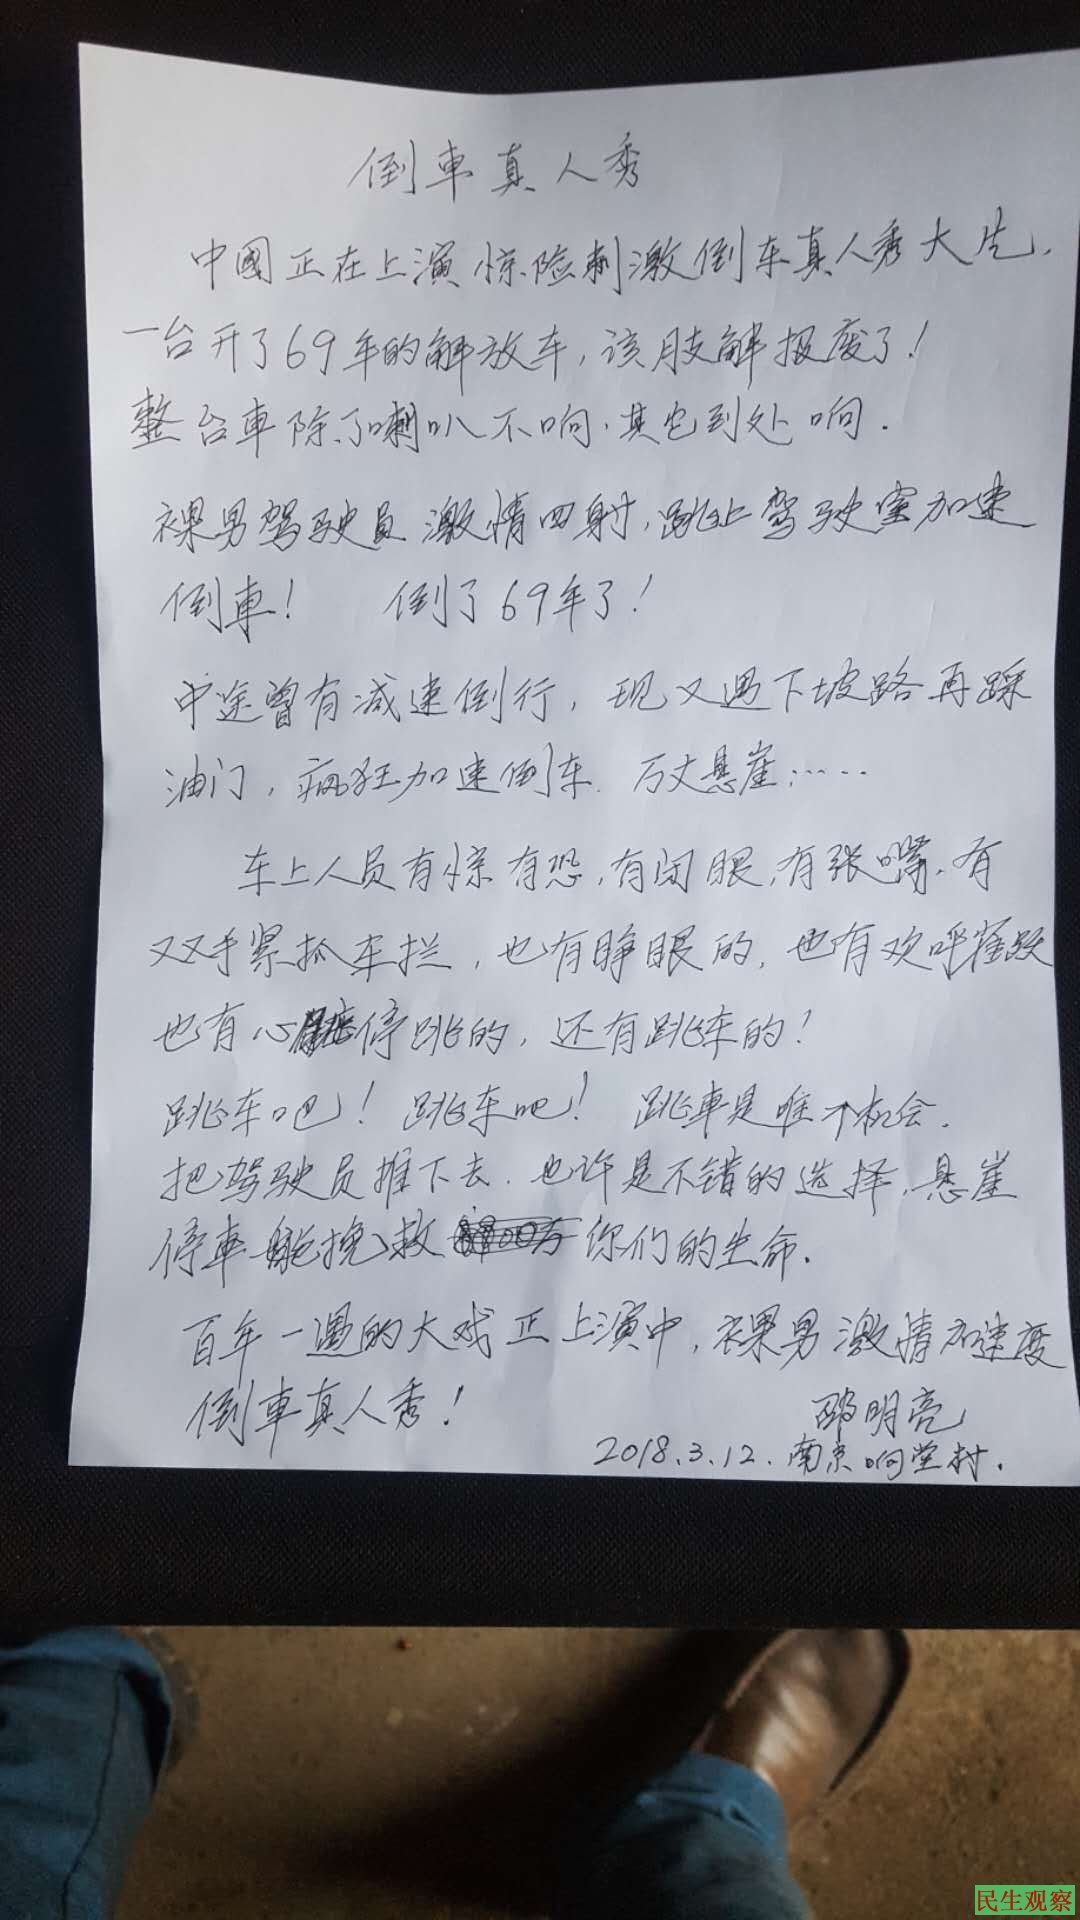 倒車真人秀
中國正在上演惊险刺激倒车真人秀大片.
一台开了69年的解放车,该肢解报废了!
整台車除了喇叭不响.其它到处响.
裸男驾驶员激情四射,跳上驾驶室加速
倒車! 倒了69年了!
中途曾有减速倒行,现又遇下坡路再踩
油门,疯狂加速倒车.万丈悬崖……
车上人员有惊有恐,有闭眼,有张嘴.有
双手紧抓车拦,也有睁眼的,也有欢呼雀跃
也有心停跳的,还有跳车的!
跳车吧! 跳车吧! 跳車是唯一机会.
把驾驶员推下去.也许是不错的选择.悬崖
停車能挽救你们的生命.
百年一遇的大戏正上演中,裸男激情加速度
倒車真人秀!
邵明亮
2018.3.12.南京响堂村.
民生观察